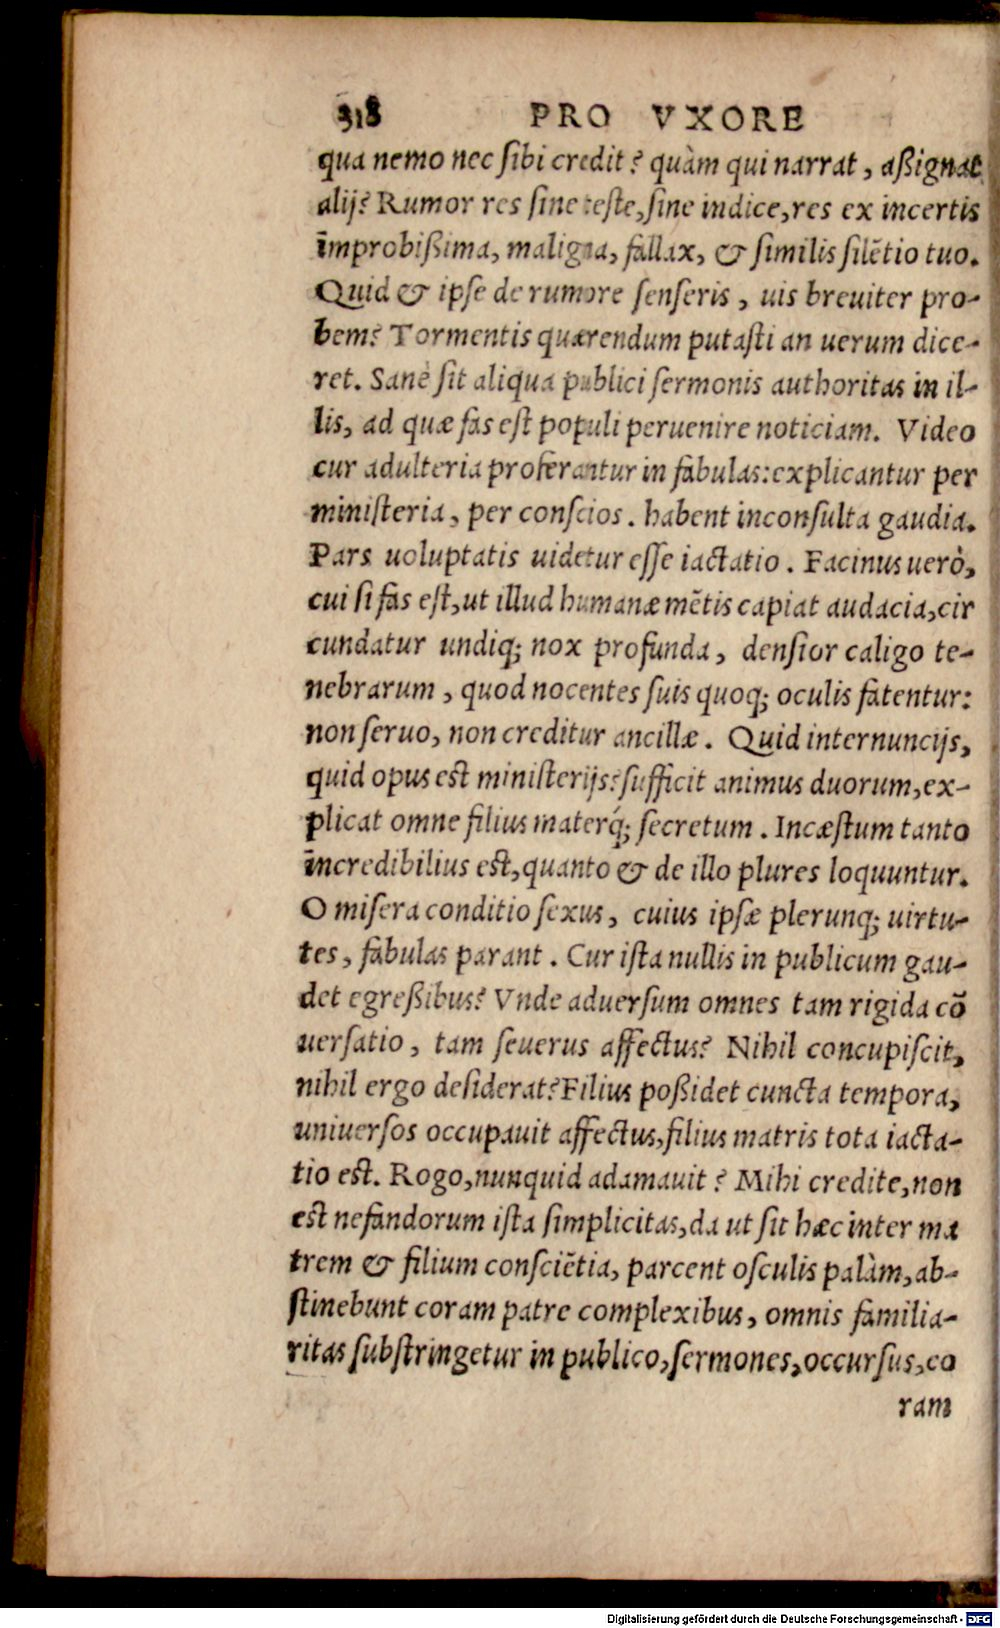 318 PRO VXORE
qua nemo nec ſibi credit? quàm qui narrat, aßignat
alij? Rumor res ſine teſte, ſine indice, res ex incertis
īmprobißima, maligna, fallax, & ſimilis ſilētio tuo.
Quid & ipſe de rumore ſenſeris, uis breuiter pro-
bem? Tormentis quærendum putaſti an uerum dice-
ret. Sanè ſit aliqua publici ſermonis authoritas in il-
lis, ad quæ fas eſt populi peruenire noticiam. Video
cur adulteria proferantur in fabulas: explicantur per
miniſteria, per conſcios. habent inconſulta gaudia.
Pars uoluptatis uidetur eſſe iactatio. Facinus uerò,
cui ſi fas eſt, ut illud humanæ mētis capiat audacia, cir
cundatur undiq; nox profunda, denſior caligo te-
nebrarum, quod nocentes ſuis quoq; oculis fatentur:
non ſeruo, non creditur ancillæ. Quid internuncijs,
quid opus est miniſterijs? ſufficit animus duorum, ex-
plicat omne filius materq́; ſecretum. Incæſtum tanto
īncredibilius est, quanto & de illo plures loquuntur.
O miſera conditio ſexus, cuius ipſæ plerunq; uirtu-
tes, fabulas parant. Cur iſta nullis in publicum gau-
det egreßibus? Vnde aduerſum omnes tam rigida cō
uerſatio, tam ſeuerus affectus? Nihil concupiſcit,
nihil ergo deſiderat? Filius poßidet cuncta tempora,
uniuerſos occupauit affectus, filius matris tota iacta-
tio est. Rogo, nunquid adamauit? Mihi credite, non
est nefandorum iſta ſimplicitas, da ut ſit hæc inter ma
trem & filium conſciētia, parcent oſculis palàm, ab-
ſtinebunt coram patre complexibus, omnis familia-
ritas ſubſtringetur in publico, ſermones, occurſus, co
ram
Digitalisierung gefördert durch die Deutsche Forschungsgemeinschaft - DFG